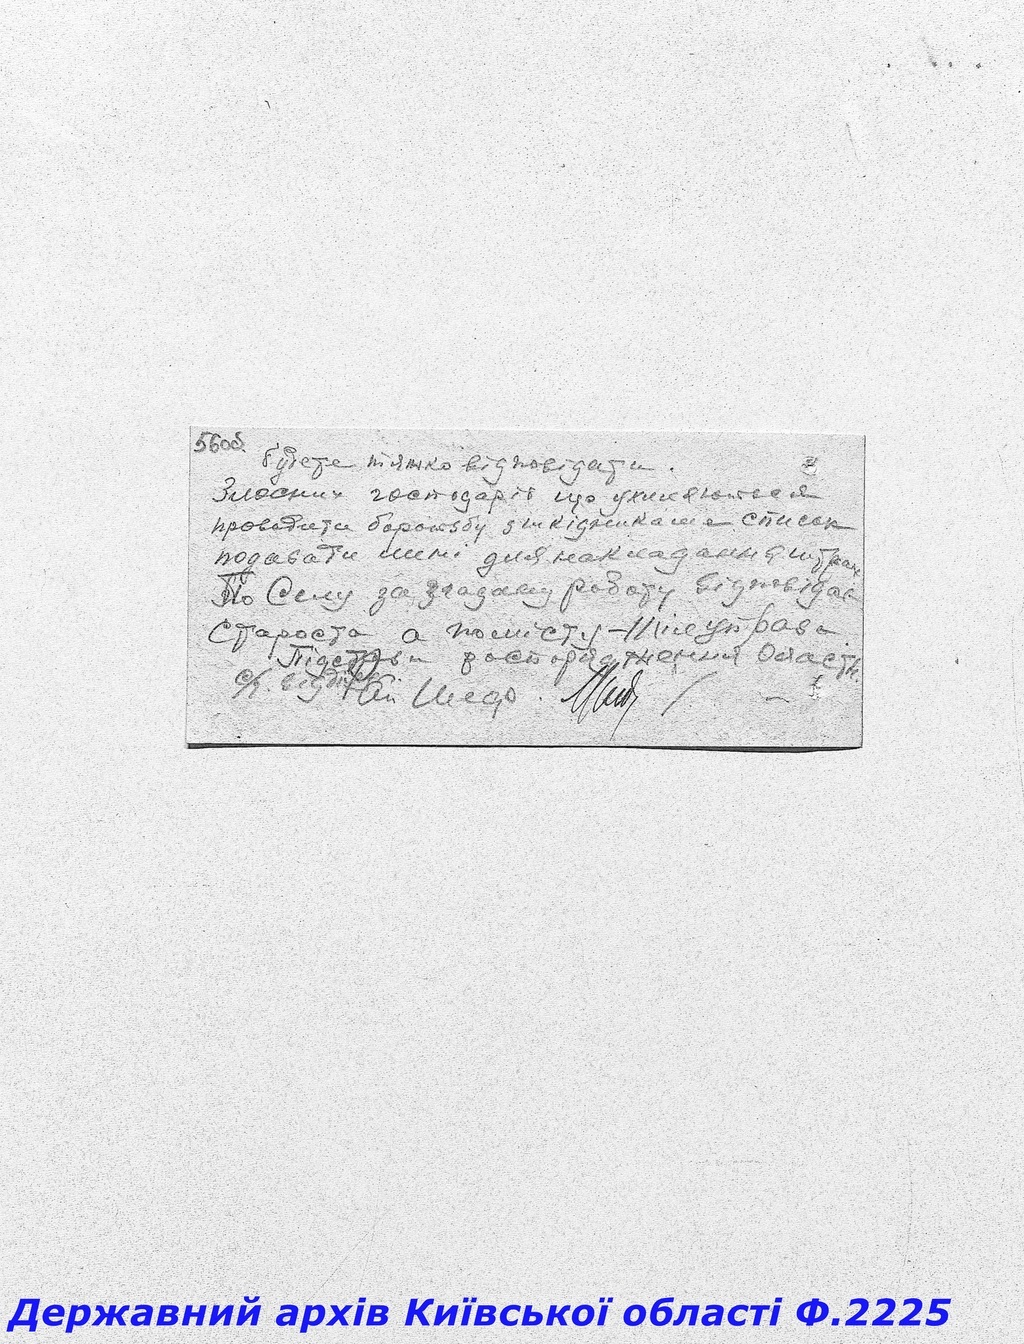 56об.
будете тяжко відповідати.
Злосних господарів що ухиляються
проводити боротьбу з шкідниками список
подавати мені для накладання штраф
По Селу за згадану роботу відповідає
Староста а по місту – Міськуправа
Підстава розпорядження Област.
с/г. відділу
Державний архів Київської області Ф.2225